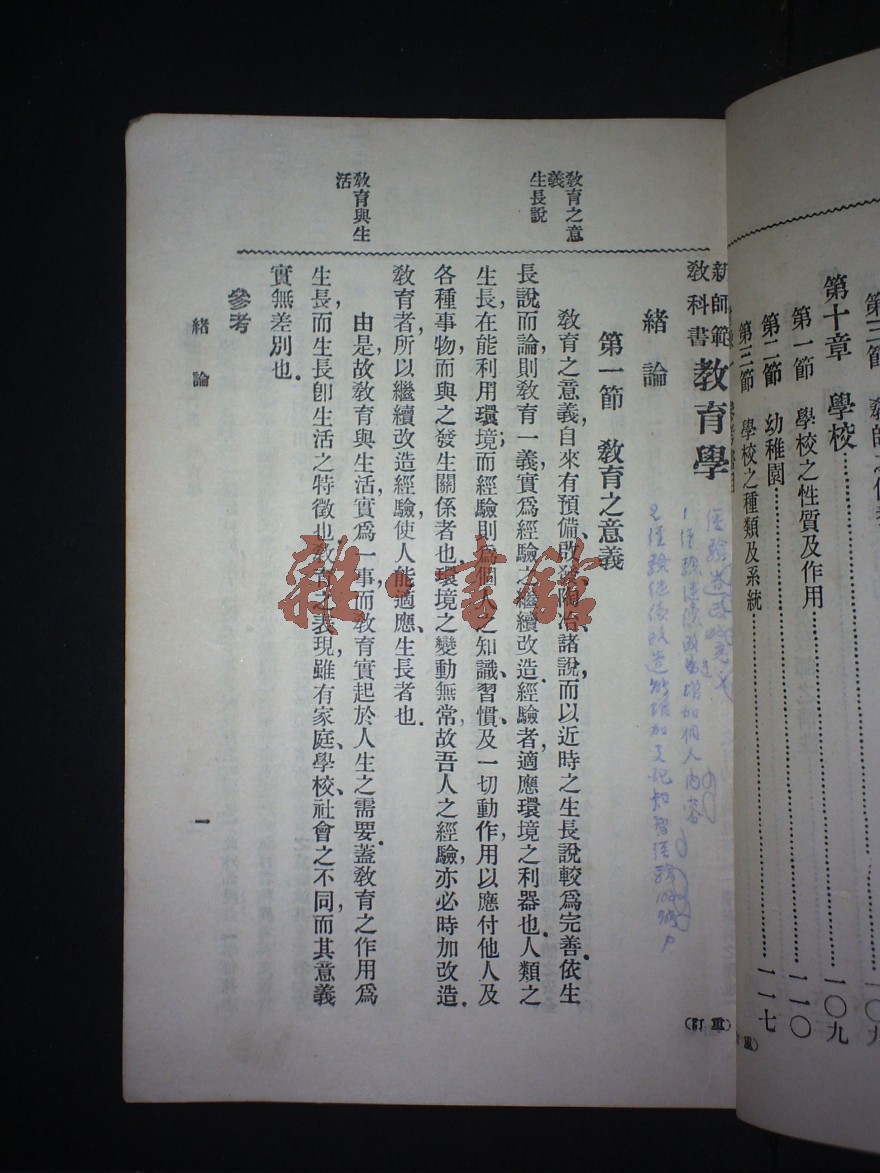 第三節
第十章 學校 一〇九
第一節 學校之性質及作用 一一〇
第二節 幼稚園
第三節 學校之種類及系統 一一七
新師範
教科書
教育學
(重訂)
緒論
第一節 教育之意義
教育之意義
生長說
教育之意義,自來有預備、啟發、陶冶、諸說,而以近時之生長說較為完善.依生
長說而論,則教育一義,實為經驗之繼續改造.經驗者,適應環境之利器也.人類之
生長,在能利用環境;而經驗則為個人之知識、習慣、及一切動作,用以應付他人及
各種事物,而與之發生關係者也.環境之變動無常,故吾人之經驗,亦必時加改造.
教育者,所以繼續改造經驗,使人能適應、生長者也.
教育與生活
由是故教育與生活,實為一事,而教育實起於人生之需要.蓋教育之作用為
生長,而生長卽生活之特徵也.教育之表現,雖有家庭、學校、社會之不同,而其意義
實無差別也.
參考
緒論
一
雜·書館